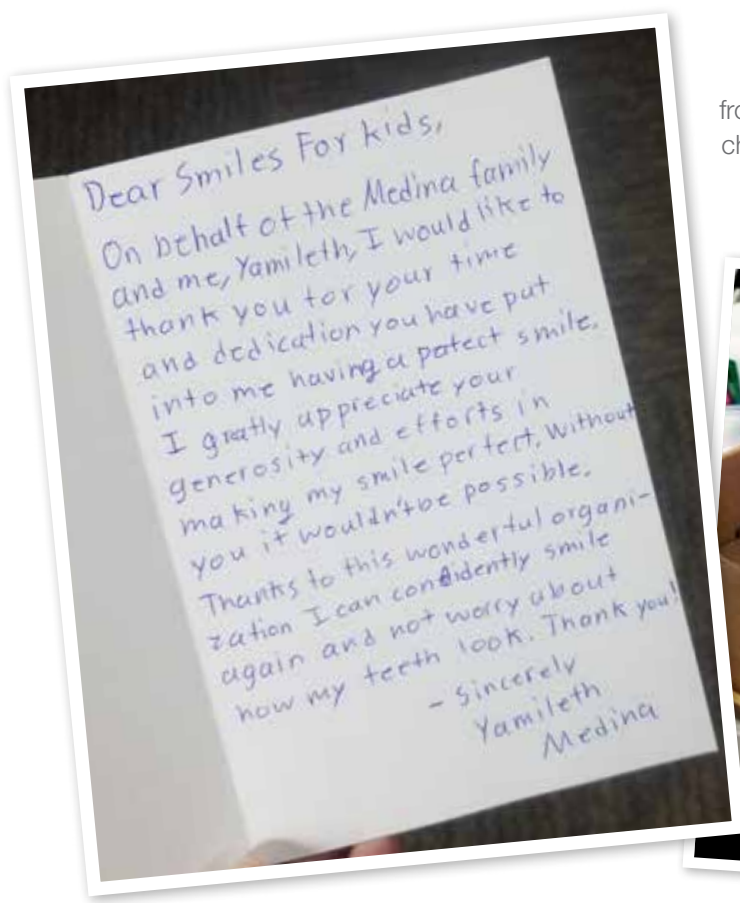 Dear Smiles For kids,
On behalf of the Medina family
and me, Yamileth, I would like to
thank you for your time
and dedication you have put
into me having a pefect smile.
I gratly appreciate your
generosity and efforts in
making my smile perfect. Without
you it wouldn't be possible.
Thanks to this wonderful organi-
zation I can confidently smile
again and not worry about
how my teeth look. Thank you!
- Sincerely
Yamileth
Medina